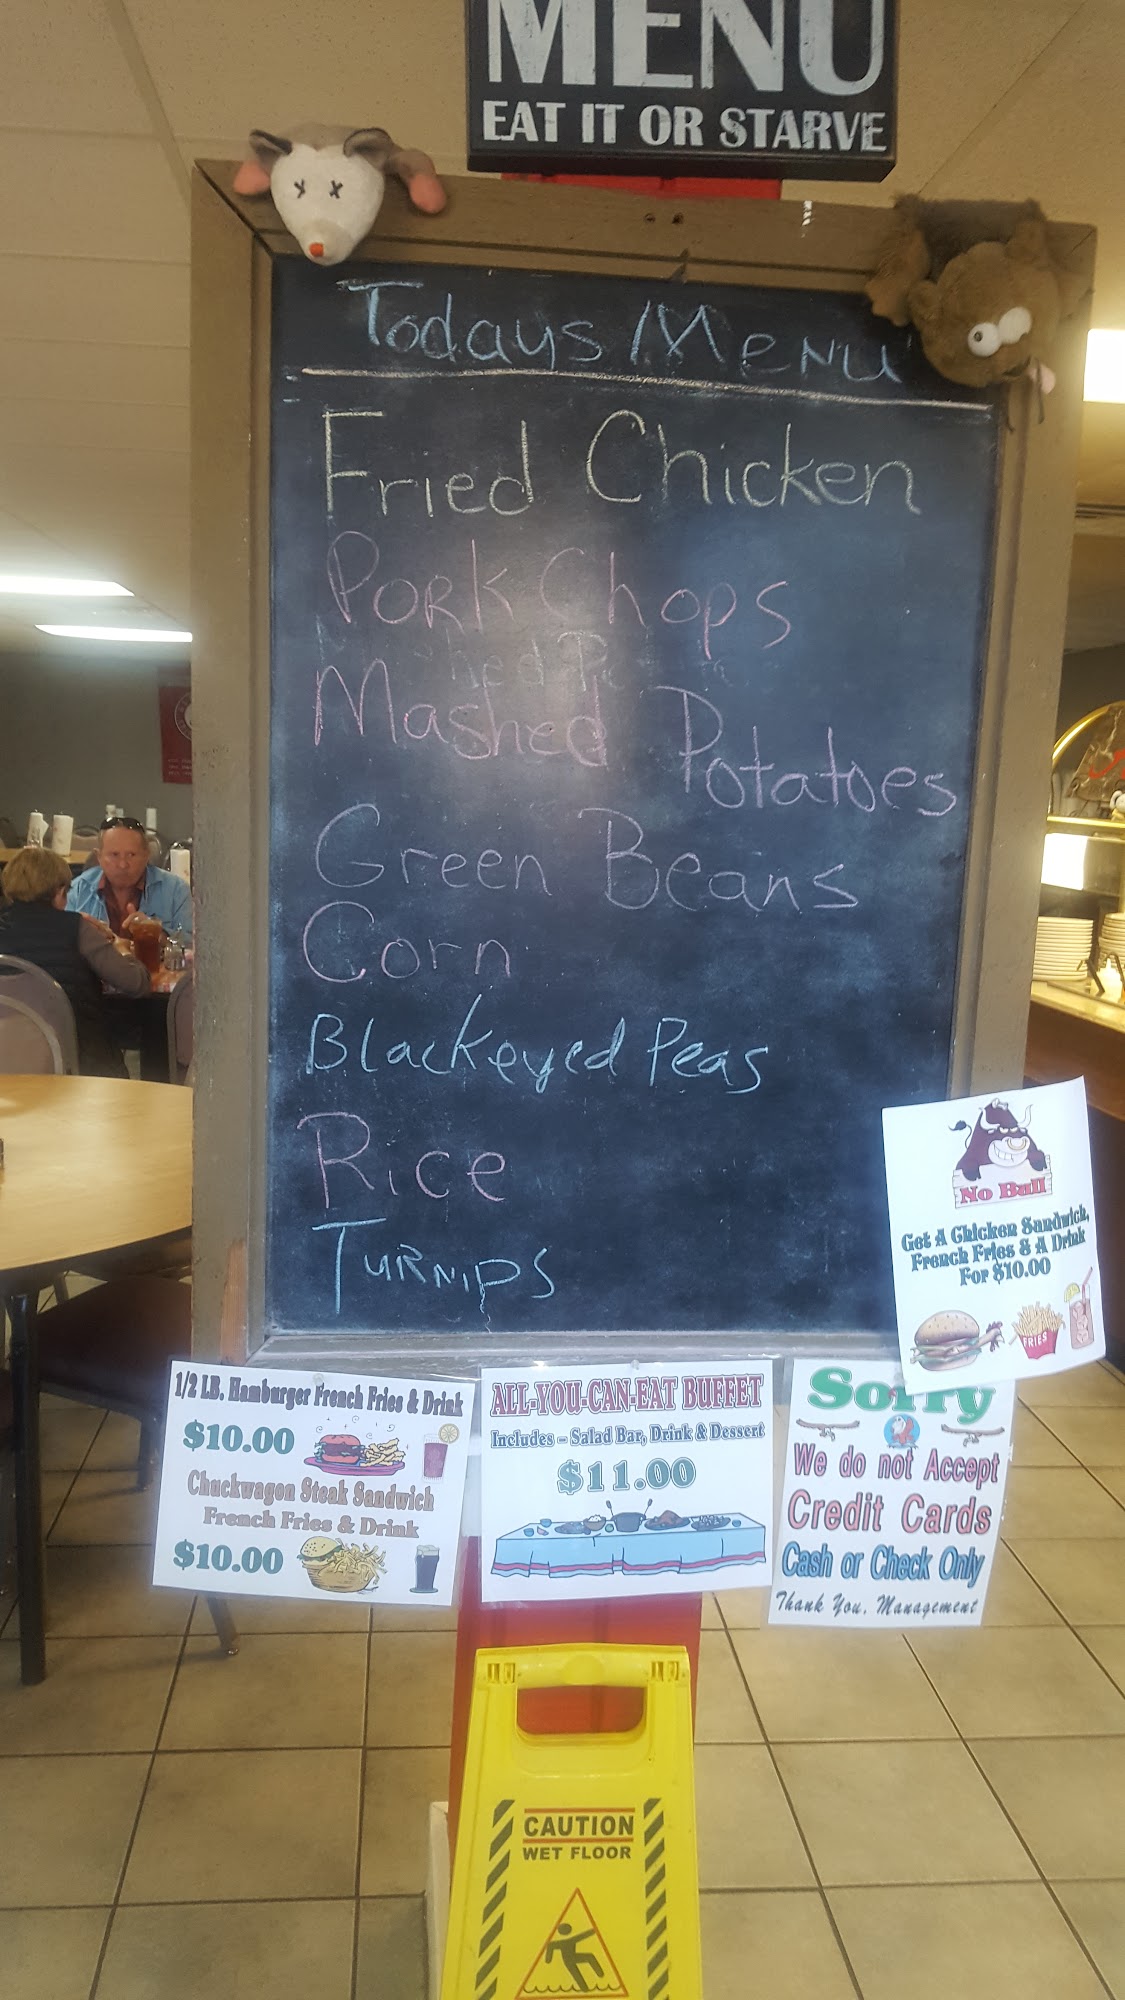 MENU
EAT IT OR STARVE
Todays Menu
Fried Chicken
Pork Chops
Mashed Potatoes
Green Beans
Corn
Blackeyed Peas
Rice
Turnips
No Bull
Get A Chicken Sandwich,
French Fries & A Drink
For $10.00
FRIES
1/2 LB. Hamburger French Fries & Drink
$10.00
Chuckwagon Steak Sandwich
French Fries & Drink
$10.00
ALL-YOU-CAN-EAT BUFFET
Includes – Salad Bar, Drink & Dessert
$11.00
Sorry
We do not Accept
Credit Cards
Cash or Check Only
Thank You, Management
CAUTION
WET FLOOR